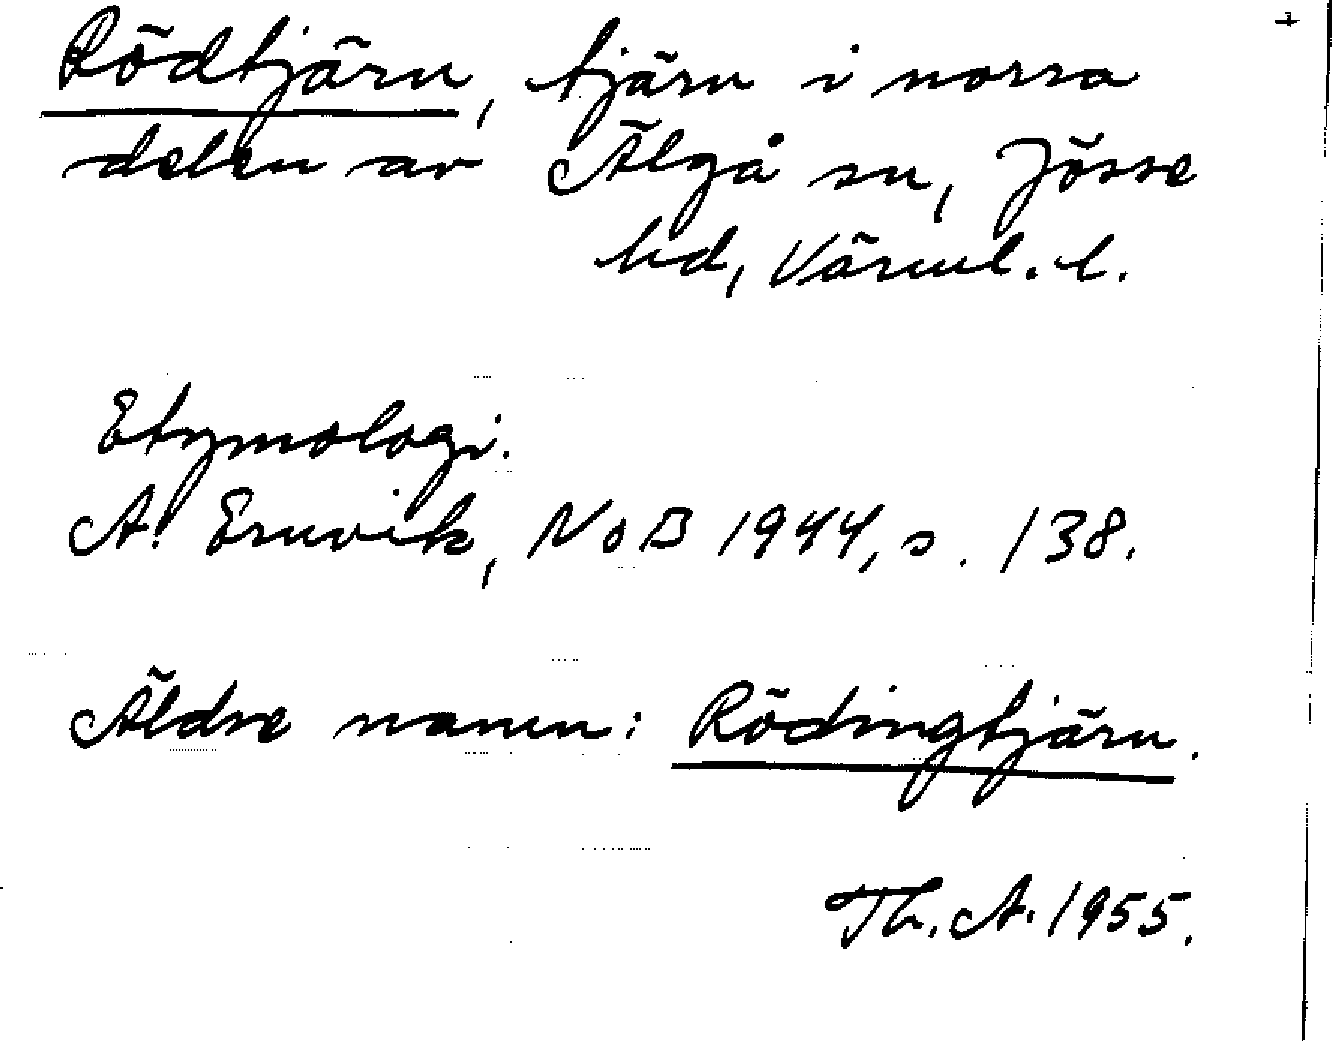 Rödtjärn, tjärn i norra
delen av Älgå sn, Jösse
hd, Värml. l.
Etymologi.
A. Ernvik, NoB 1944, s. 138.
Äldre namn: Rödingtjärn.
Th. A. 1955.